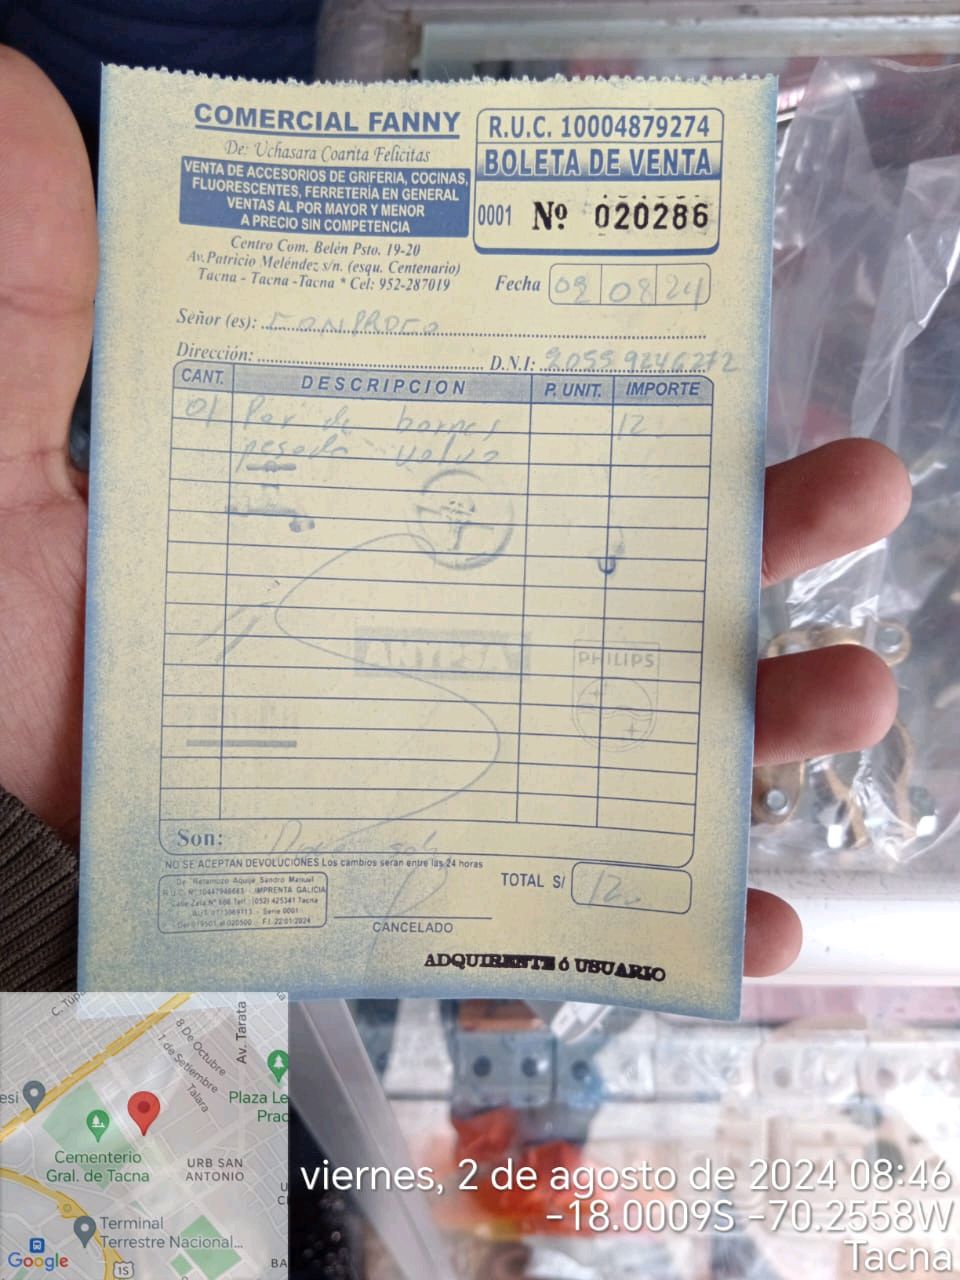 COMERCIAL FANNY
De: Uchasara Coarita Felicitas
VENTA DE ACCESORIOS DE GRIFERIA, COCINAS,
FLUORESCENTES, FERRETERÍA EN GENERAL
VENTAS AL POR MAYOR Y MENOR
A PRECIO SIN COMPETENCIA
Centro Com. Belén Psto. 19-20
Av. Patricio Meléndez s/n. (esqu. Centenario)
Tacna - Tacna - Tacna * Cel: 952-287019
R.U.C. 10004879274
BOLETA DE VENTA
0001 Nº 020286
Fecha 02 08 24
Señor (es):
Dirección: D.N.I: 20559246272
CANT. DESCRIPCION P. UNIT. IMPORTE
01 Par de 12
pesada
PHILIPS
Son: Doce
NO SE ACEPTAN DEVOLUCIONES Los cambios seran entre las 24 horas
De: Retamozo Aquije Sandro Manuel
IMPRENTA GALICIA
Calle Zela Nº 686 Telf.: (052) 425341 Tacna
Serie 0001
Del 019501 al 020500 - F.I. 22/01/2024
TOTAL S/ 12
CANCELADO
ADQUIRENTE ó USUARIO
8 De Octubre
1 de Setiembre
Talara
Av. Tarata
Plaza Le
Prac
Cementerio
Gral. de Tacna
URB SAN
ANTONIO
Terminal
Terrestre Nacional...
Google
1S
BA
viernes, 2 de agosto de 2024 08:46
-18.0009S -70.2558W
Tacna